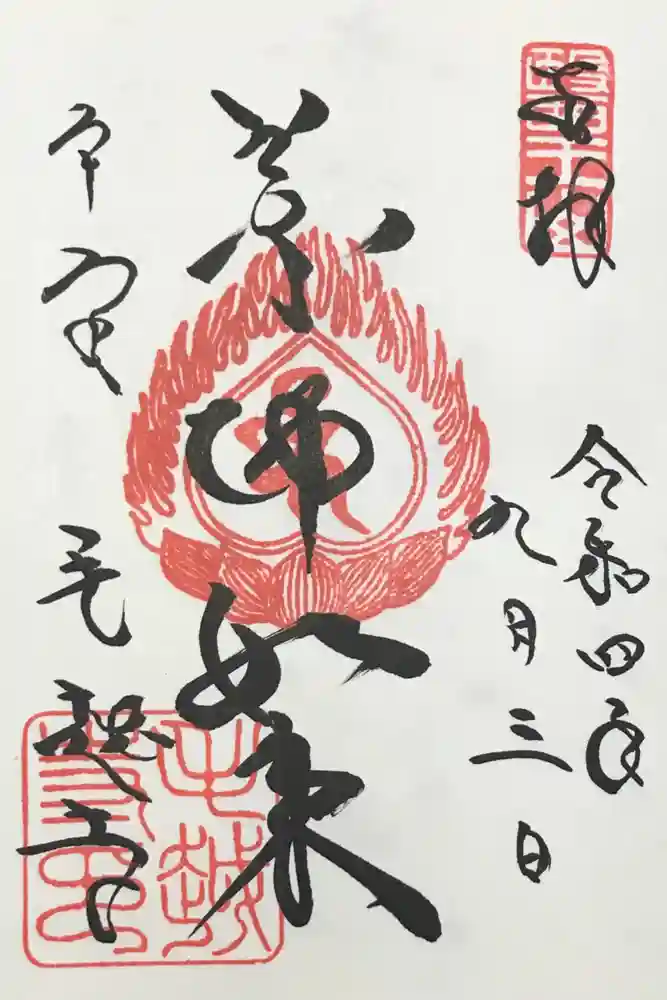 奉拝
令和四年
九月三日
薬師如来
平泉
毛越寺
毛越
寺印